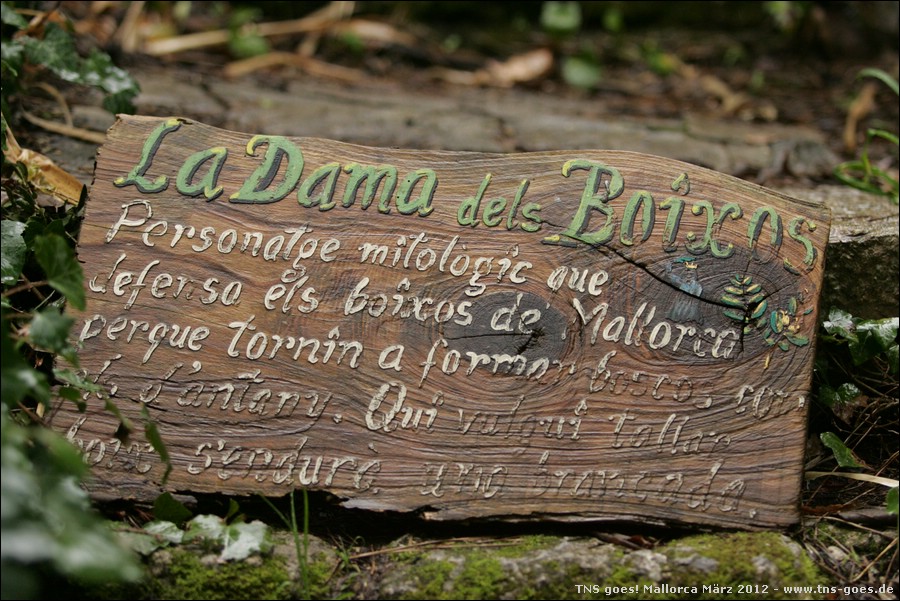 La Dama dels Boîxos
Personatge mîtològic que
defensa els boîxos de Mallorca
perque tornîn a formar boscos, com
els d'antany. Quî vulguî tallar
boix s'endurà una brancada.
TNS goes! Mallorca März 2012 - www.tns-goes.de